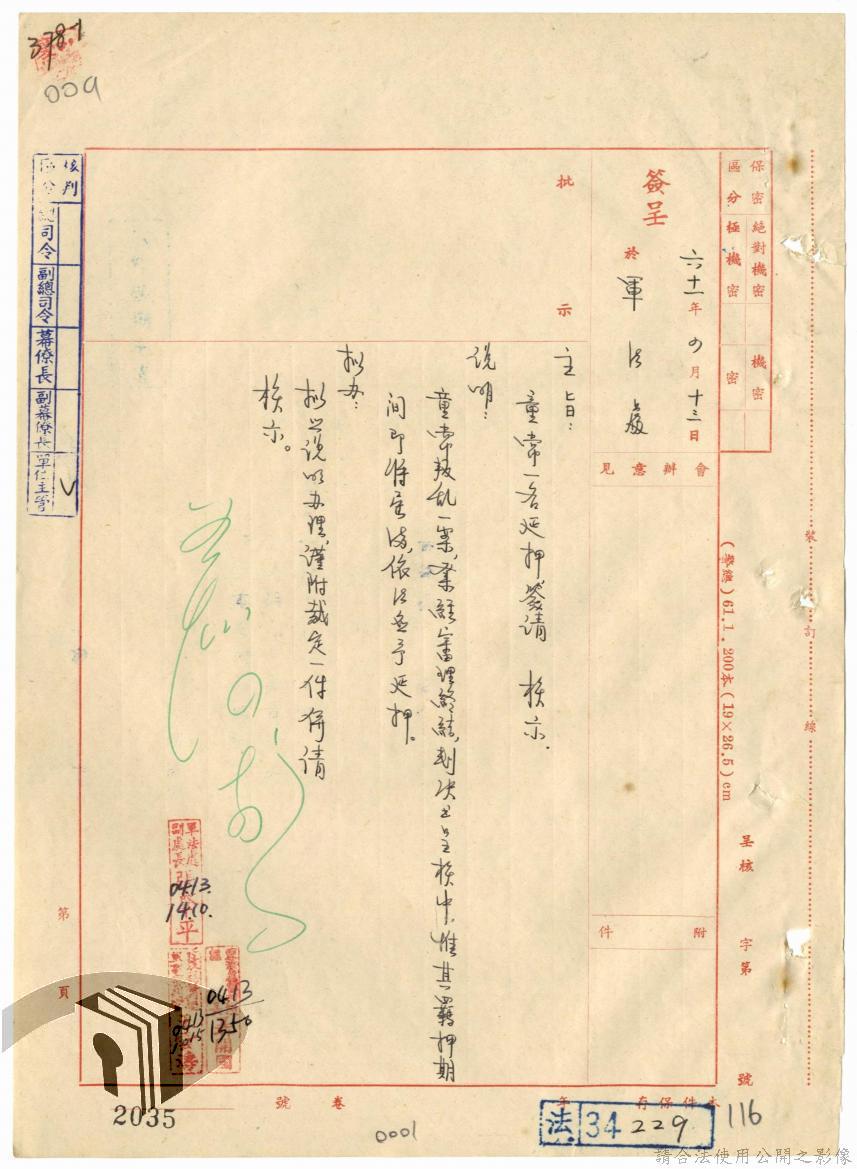 378.1
009
保密區分
絕對機密
極機密
機密
密
簽呈
六十一年四月十三日
於軍法處
會辦意見
附件
批示
主旨：
童常一名延押，簽請　核示。
說明：
童常叛乱一案，業經審理終結，判決書呈核中，惟其羈押期
間即將屆滿，依法應予延押。
拟办：
拟如說明办理，謹附裁定一件併請
核示。
核判區分
總司令
副總司令
幕僚長
副幕僚長
單位主管
V
軍法處
副處長
平
04.13.
14.10.
04.13
1350
04.13
裝訂線
(警總) 61.1. 200本 (19×26.5) cm
呈核　字第　號
第　頁
本件保存　年　卷　號
2035
0001
法 34 229
116
請合法使用公開之影像